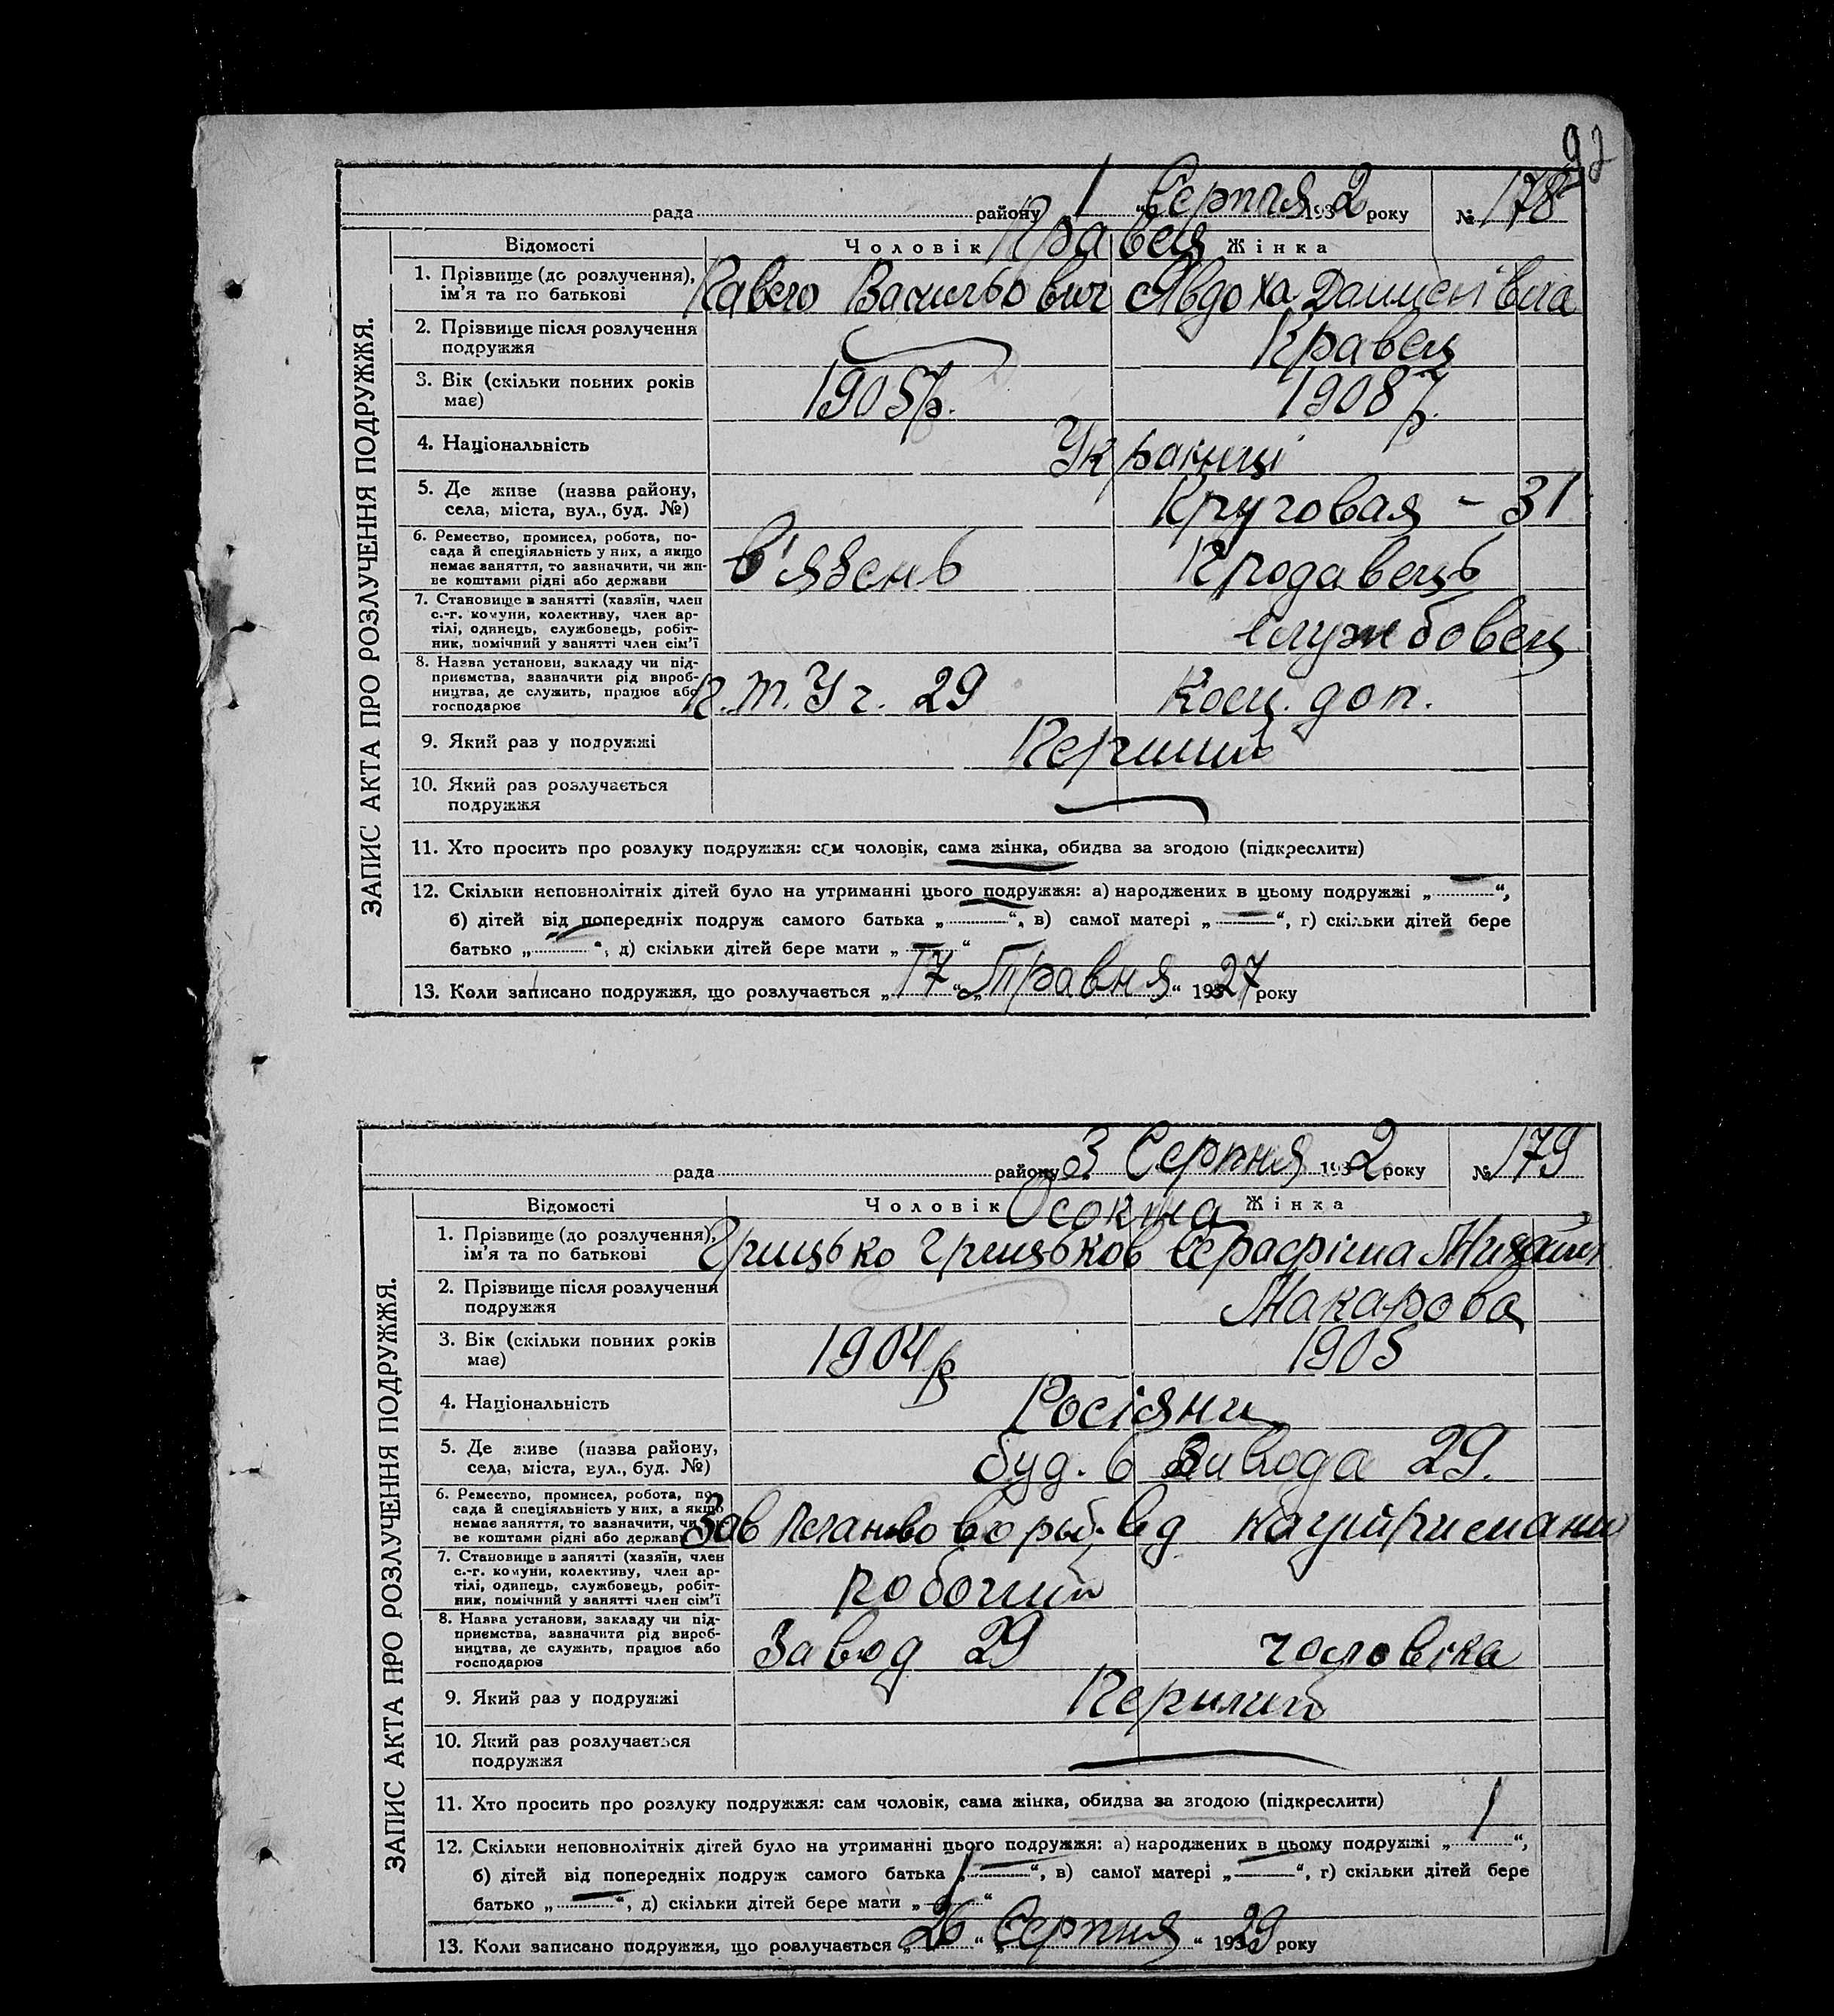 92
ЗАПИС АКТА ПРО РОЗЛУЧЕННЯ ПОДРУЖЖЯ.
рада районy 1 "Серпня 1932 року № 178
Відомості Чоловік Кравец Жінка
1. Прізвище (до розлучення), ім'я та по батькові Павло Васильович Явдоха
2. Прізвище після розлучення подружжя Кравец
3. Вік (скільки повних років має) 1905 р. 1908 р.
4. Національність Українці
5. Де живе (назва району, села, міста, вул., буд. №) Круговая - 31
6. Ремество, промисел, робота, посада й спеціяльність у них, а якщо немає заняття, то зазначити, чи живе коштами рідні або держави в'язень Продавець
7. Становище в занятті (хазяїн, член с.-г. комуни, колективу, член артілі, одинець, службовець, робітник, помічний у занятті член сім'ї службовец
8. Назва установи, закладу чи підприємства, зазначити рід виробництва, де служить, працює або господарює 29 доп.
9. Який раз у подружжі Перший
10. Який раз розлучається подружжя
11. Хто просить про розлуку подружжя: сам чоловік, сама жінка, обидва за згодою (підкреслити)
12. Скільки неповнолітніх дітей було на утриманні цього подружжя: а) народжених в цьому подружжі „ — “,
б) дітей від попередніх подруж самого батька „ “, в) самої матері „ — “, г) скільки дітей бере
батько „ “, д) скільки дітей бере мати „ — “
13. Коли записано подружжя, що розлучається „ 17 “ „ Травня “ 1927 року
ЗАПИС АКТА ПРО РОЗЛУЧЕННЯ ПОДРУЖЖЯ.
рада району 3 Серпня 1932 року № 179
Відомості Чоловік Осокина Жінка
1. Прізвище (до розлучення), ім'я та по батькові Грицько Грицьков Серафіма Михайл
2. Прізвище після розлучення подружжя Макарова
3. Вік (скільки повних років має) 1904 р 1905
4. Національність Росіяни
5. Де живе (назва району, села, міста, вул., буд. №) буд. 6 Завода 29.
6. Ремество, промисел, робота, посада й спеціяльність у них, а якщо немає заняття, то зазначити, чи живе коштами рідні або держави Зав на утриманні
7. Становище в занятті (хазяїн, член с.-г. комуни, колективу, член артілі, одинець, службовець, робітник, помічний у занятті член сім'ї робочий
8. Назва установи, закладу чи підприємства, зазначити рід виробництва, де служить, працює або господарює Завод 29 чоловіка
9. Який раз у подружжі Перший
10. Який раз розлучається подружжя
11. Хто просить про розлуку подружжя: сам чоловік, сама жінка, обидва за згодою (підкреслити)
12. Скільки неповнолітніх дітей було на утриманні цього подружжя: а) народжених в цьому подружжі „ 1 “,
б) дітей від попередніх подруж самого батька „ — “, в) самої матері „ — “, г) скільки дітей бере
батько „ — “, д) скільки дітей бере мати „ 1 “
13. Коли записано подружжя, що розлучається „ 26 “ „ Серпня “ 1929 року